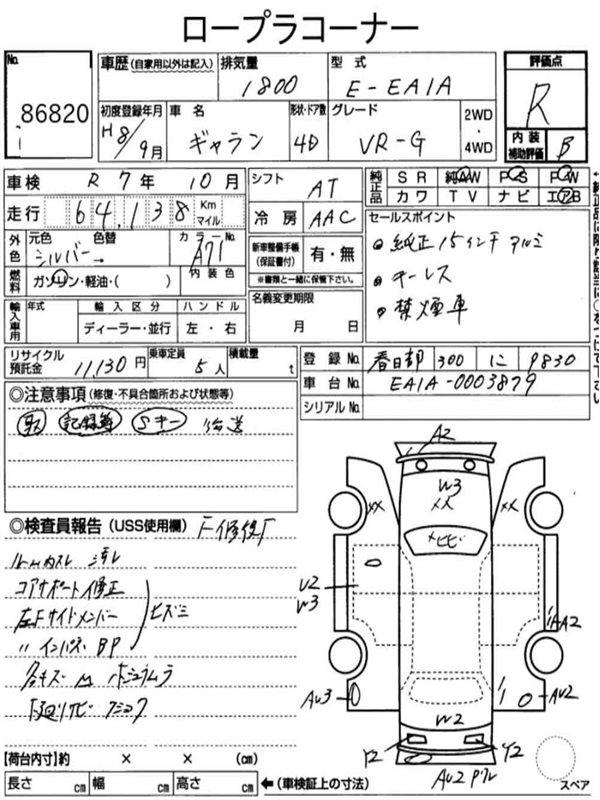 ロープラコーナー
No.
86820
車歴 (自家用以外は記入)
排気量
1800
型式
E-EA1A
評価点
R
内装
補助評価
B
初度登録年月
H8/9月
車名
ギャラン
形状・ドア数
4D
グレード
VR-G
2WD
・
4WD
車検 R 7年 10月
シフト
AT
純正品
SR 純AW PS PW
カワ TV ナビ エアB
走行 64,138 Km マイル
冷房 AAC
セールスポイント
純正15インチアルミ
キーレス
禁煙車
外色
元色 色替
シルバー→
カラーNo.
A71
新車整備手帳
(保証書付)
有・無
※書類と一緒に保管下さい。
燃料
ガソリン・軽油・( )
内装色
輸入車用
年式
輸入区分
ハンドル
ディーラー・並行
左・右
名義変更期限
月 日
リサイクル
預託金
11,130円
乗車定員
5人
積載量
t
登録No. 春日部 300 に 9830
車台No. EA1A-0003879
シリアルNo.
◎注意事項 (修復・不具合箇所および状態等)
取 記録簿 Sキー 後送
◎検査員報告 (USS使用欄)
ルーム内スレ 汚れ
コアサポート修正
左Fサイドメンバー
〃 インパネ BP
ヒズミ
各キズ
下廻りサビ
A2
W3
XX
XX
XX
×ヒビ
U2
W3
A2
AU3
AU2
W2
Y2
Y2
AU2
スペア
【荷台内寸】約 × × (cm)
長さ cm 幅 cm 高さ cm ←(車検証上の寸法)